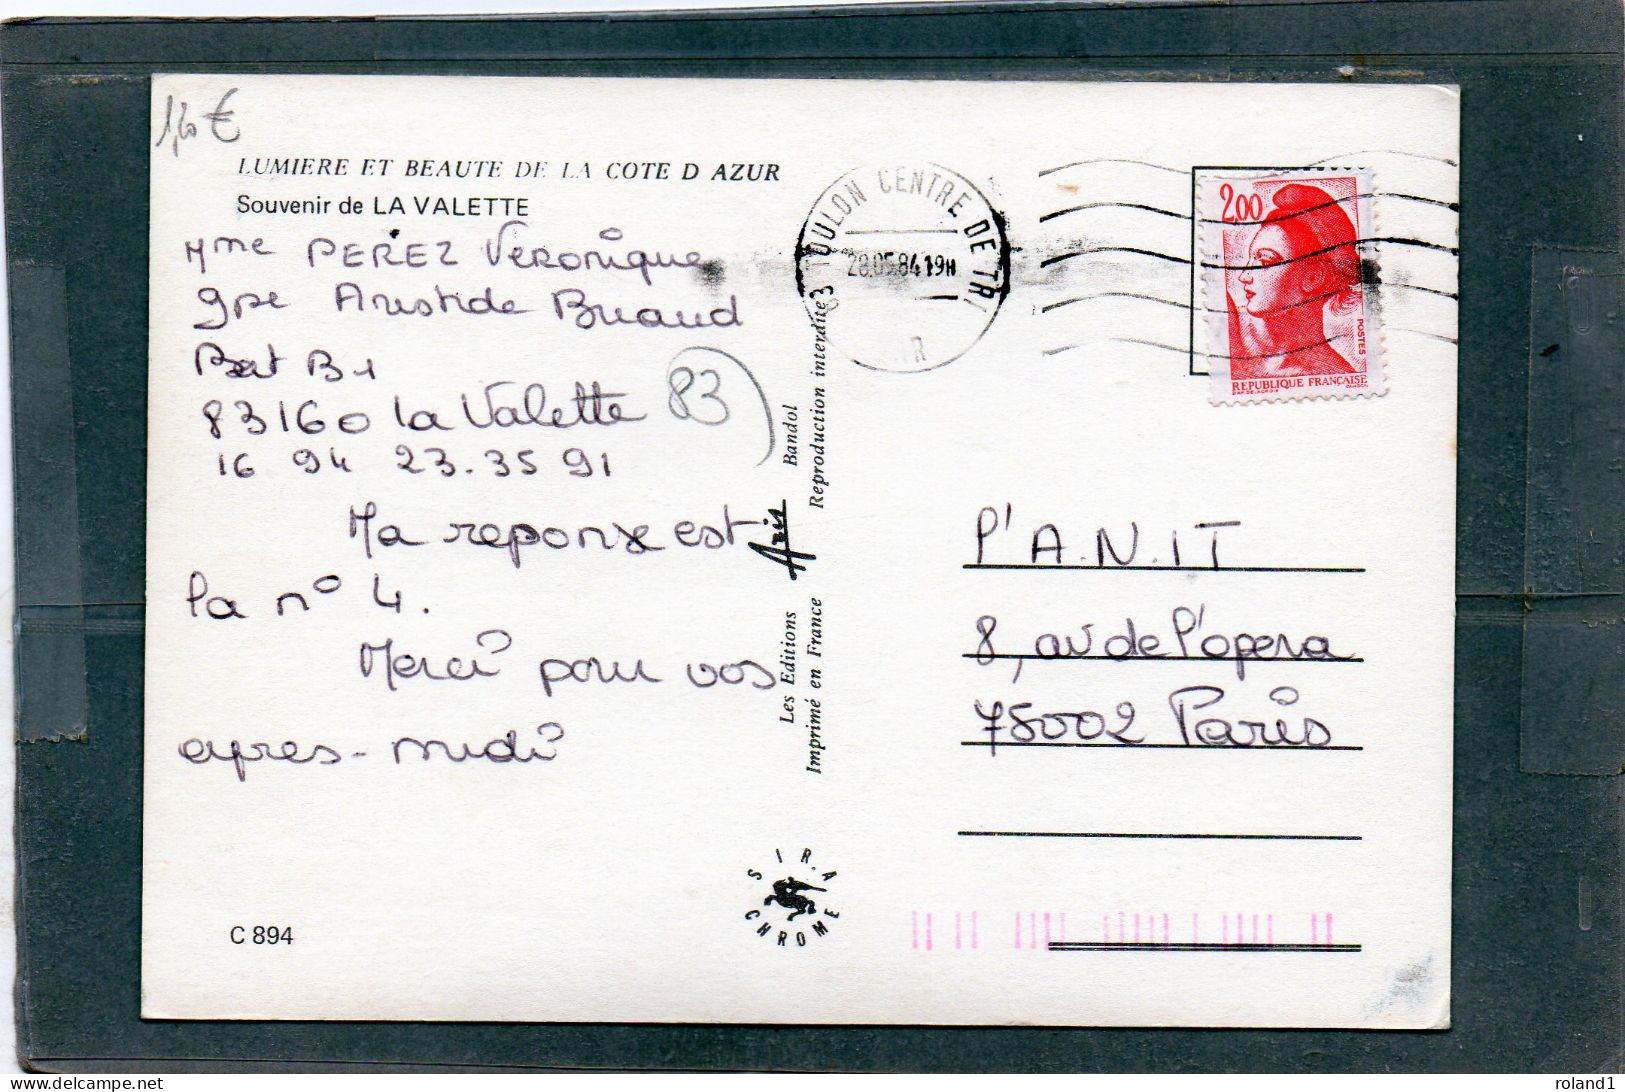 1,20 €
LUMIERE ET BEAUTE DE LA COTE D AZUR
Souvenir de LA VALETTE
Mme PEREZ Veronique
gpe Aristide Briand
Bat B1
83160 la Valette 83
16 94 23.35 91
Ma reponse est
la n° 4.
Merci pour vos
apres-midi
C 894
Les Editions Aris Bandol
Imprimé en France Reproduction interdite
SIRA CHROME
83 TOULON CENTRE DE TRI
28.05.84 19H
VAR
2,00
POSTES
REPUBLIQUE FRANÇAISE
l'A.N.I T
8, av de l'opera
75002 Paris
roland1